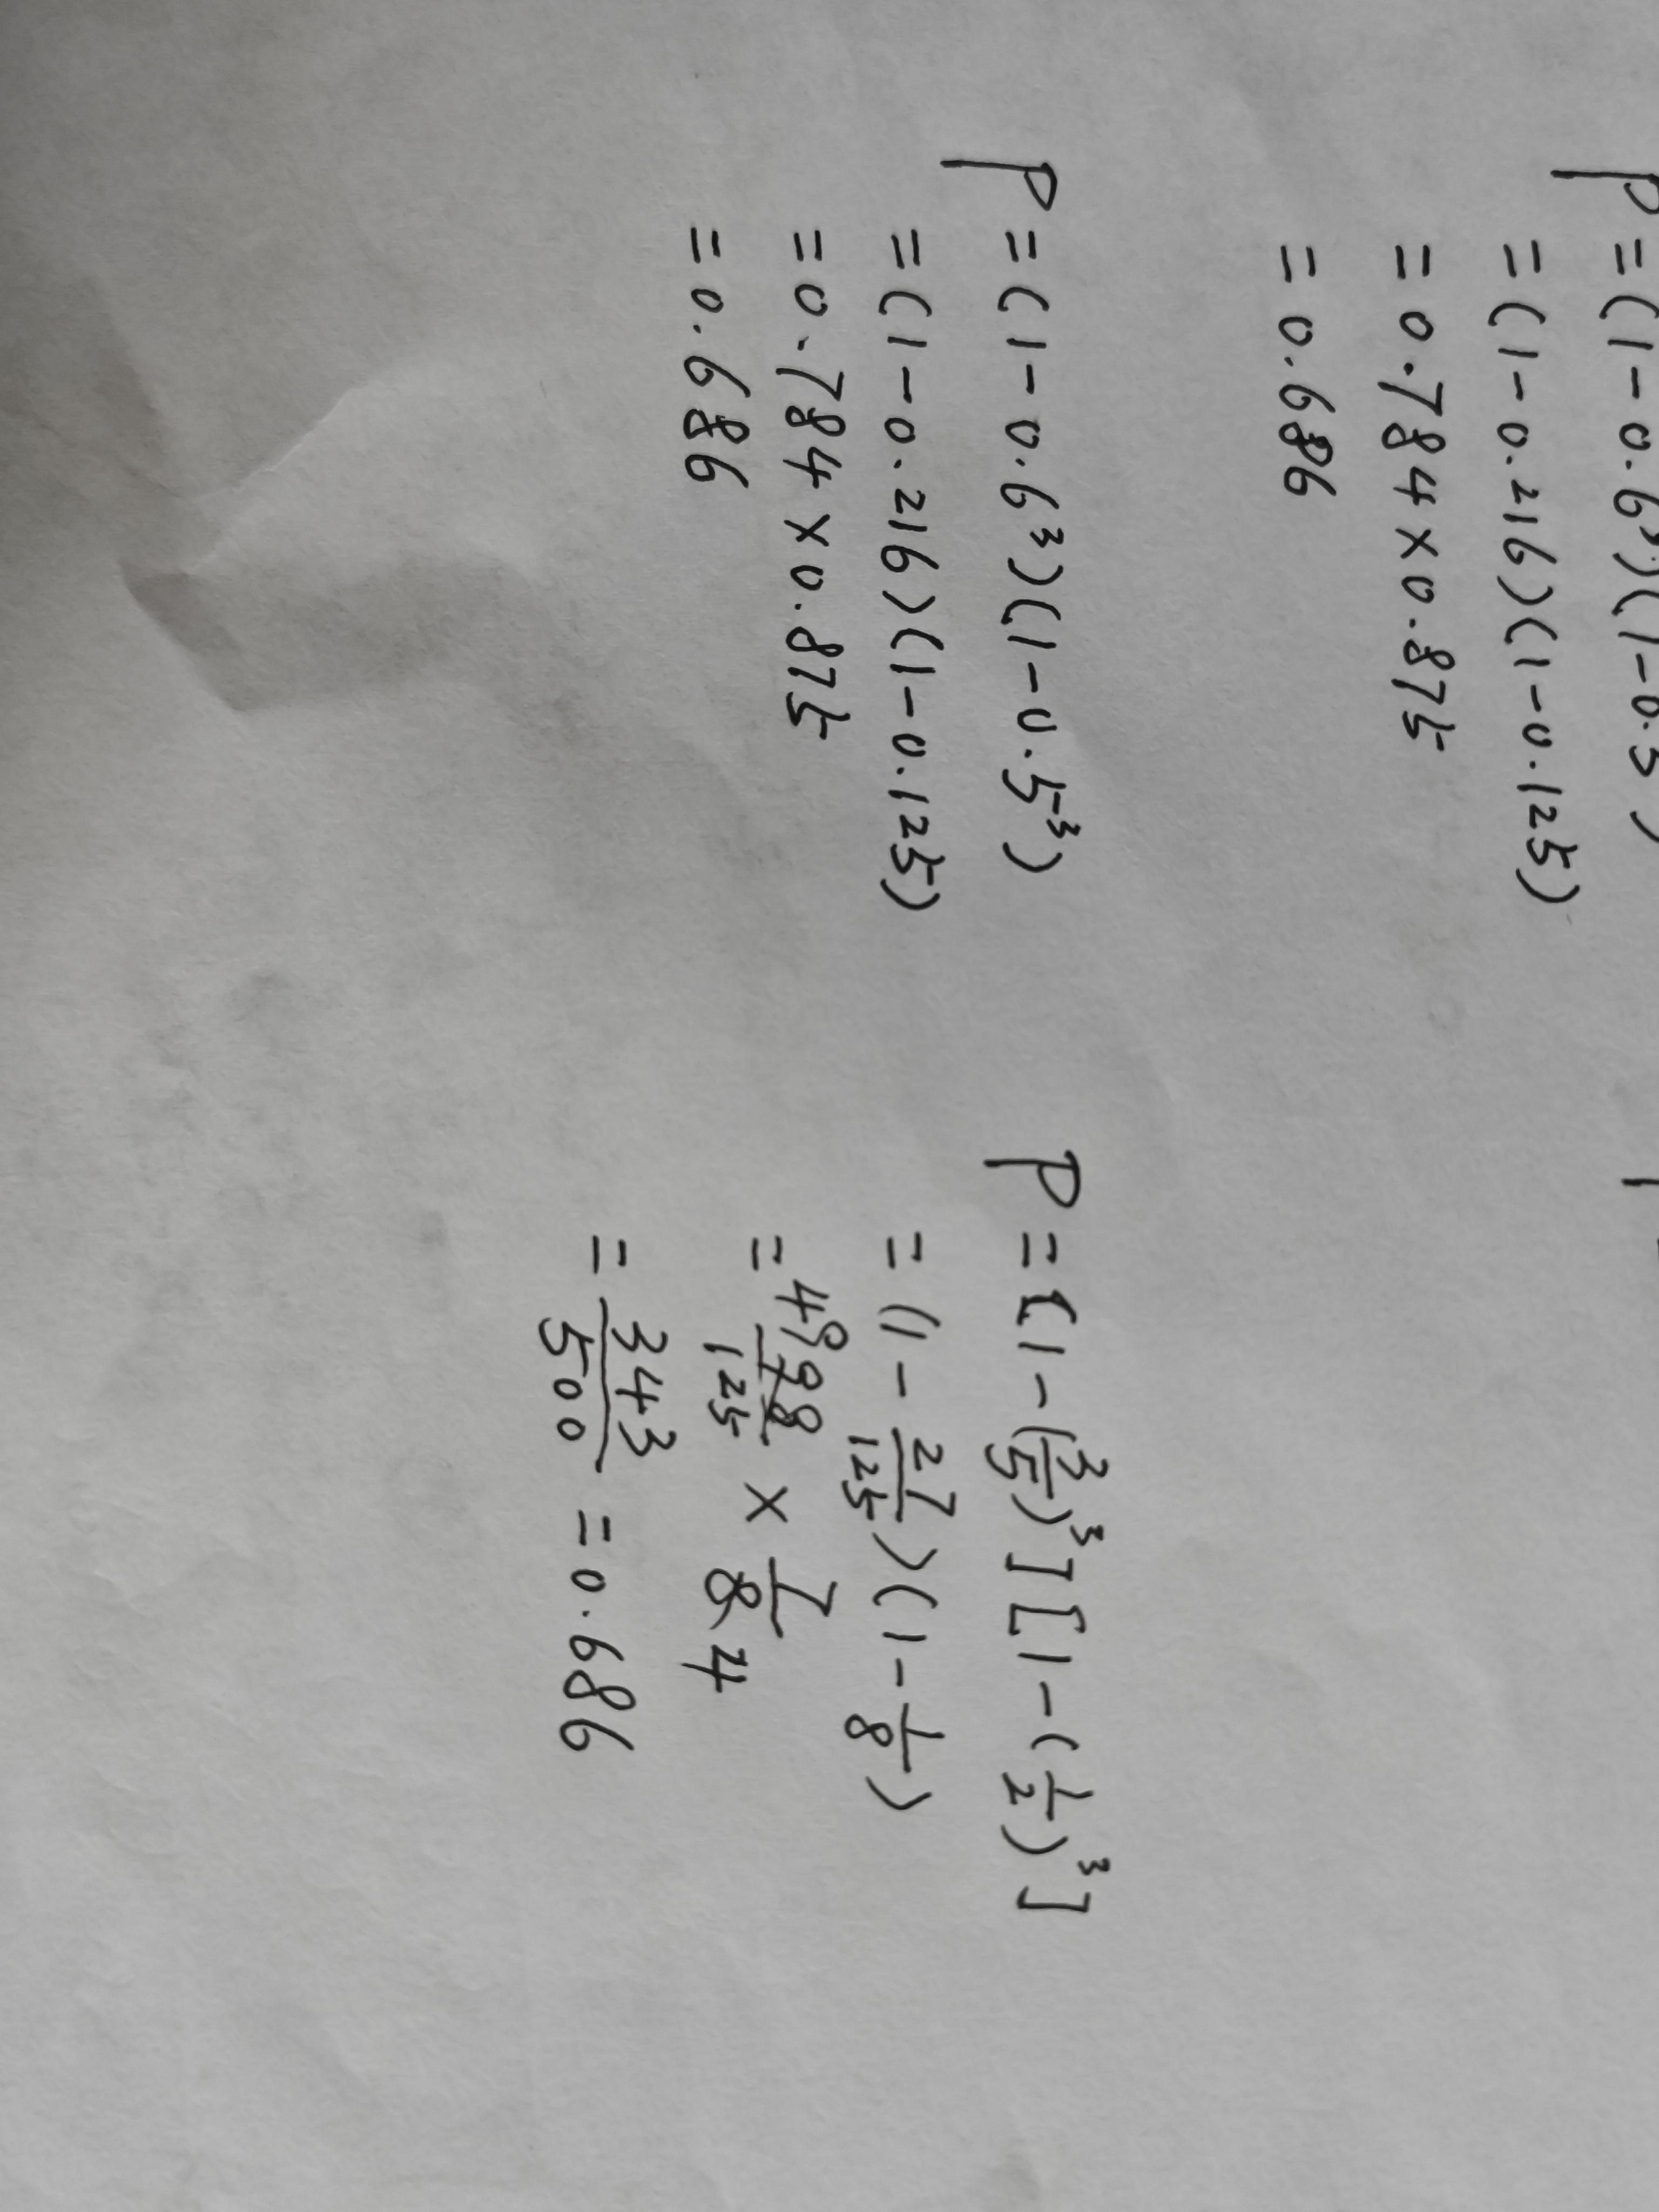 P = (1 - 0.6³)(1 - 0.5
= (1 - 0.216)(1 - 0.125)
= 0.784 × 0.875
= 0.686
P = (1 - 0.6³)(1 - 0.5³)
= (1 - 0.216)(1 - 0.125)
= 0.784 × 0.875
= 0.686
P = [1 - (3/5)³][1 - (1/2)³]
= (1 - 27/125)(1 - 1/8)
= 49 98/125 × 7/8 4
= 343/500 = 0.686